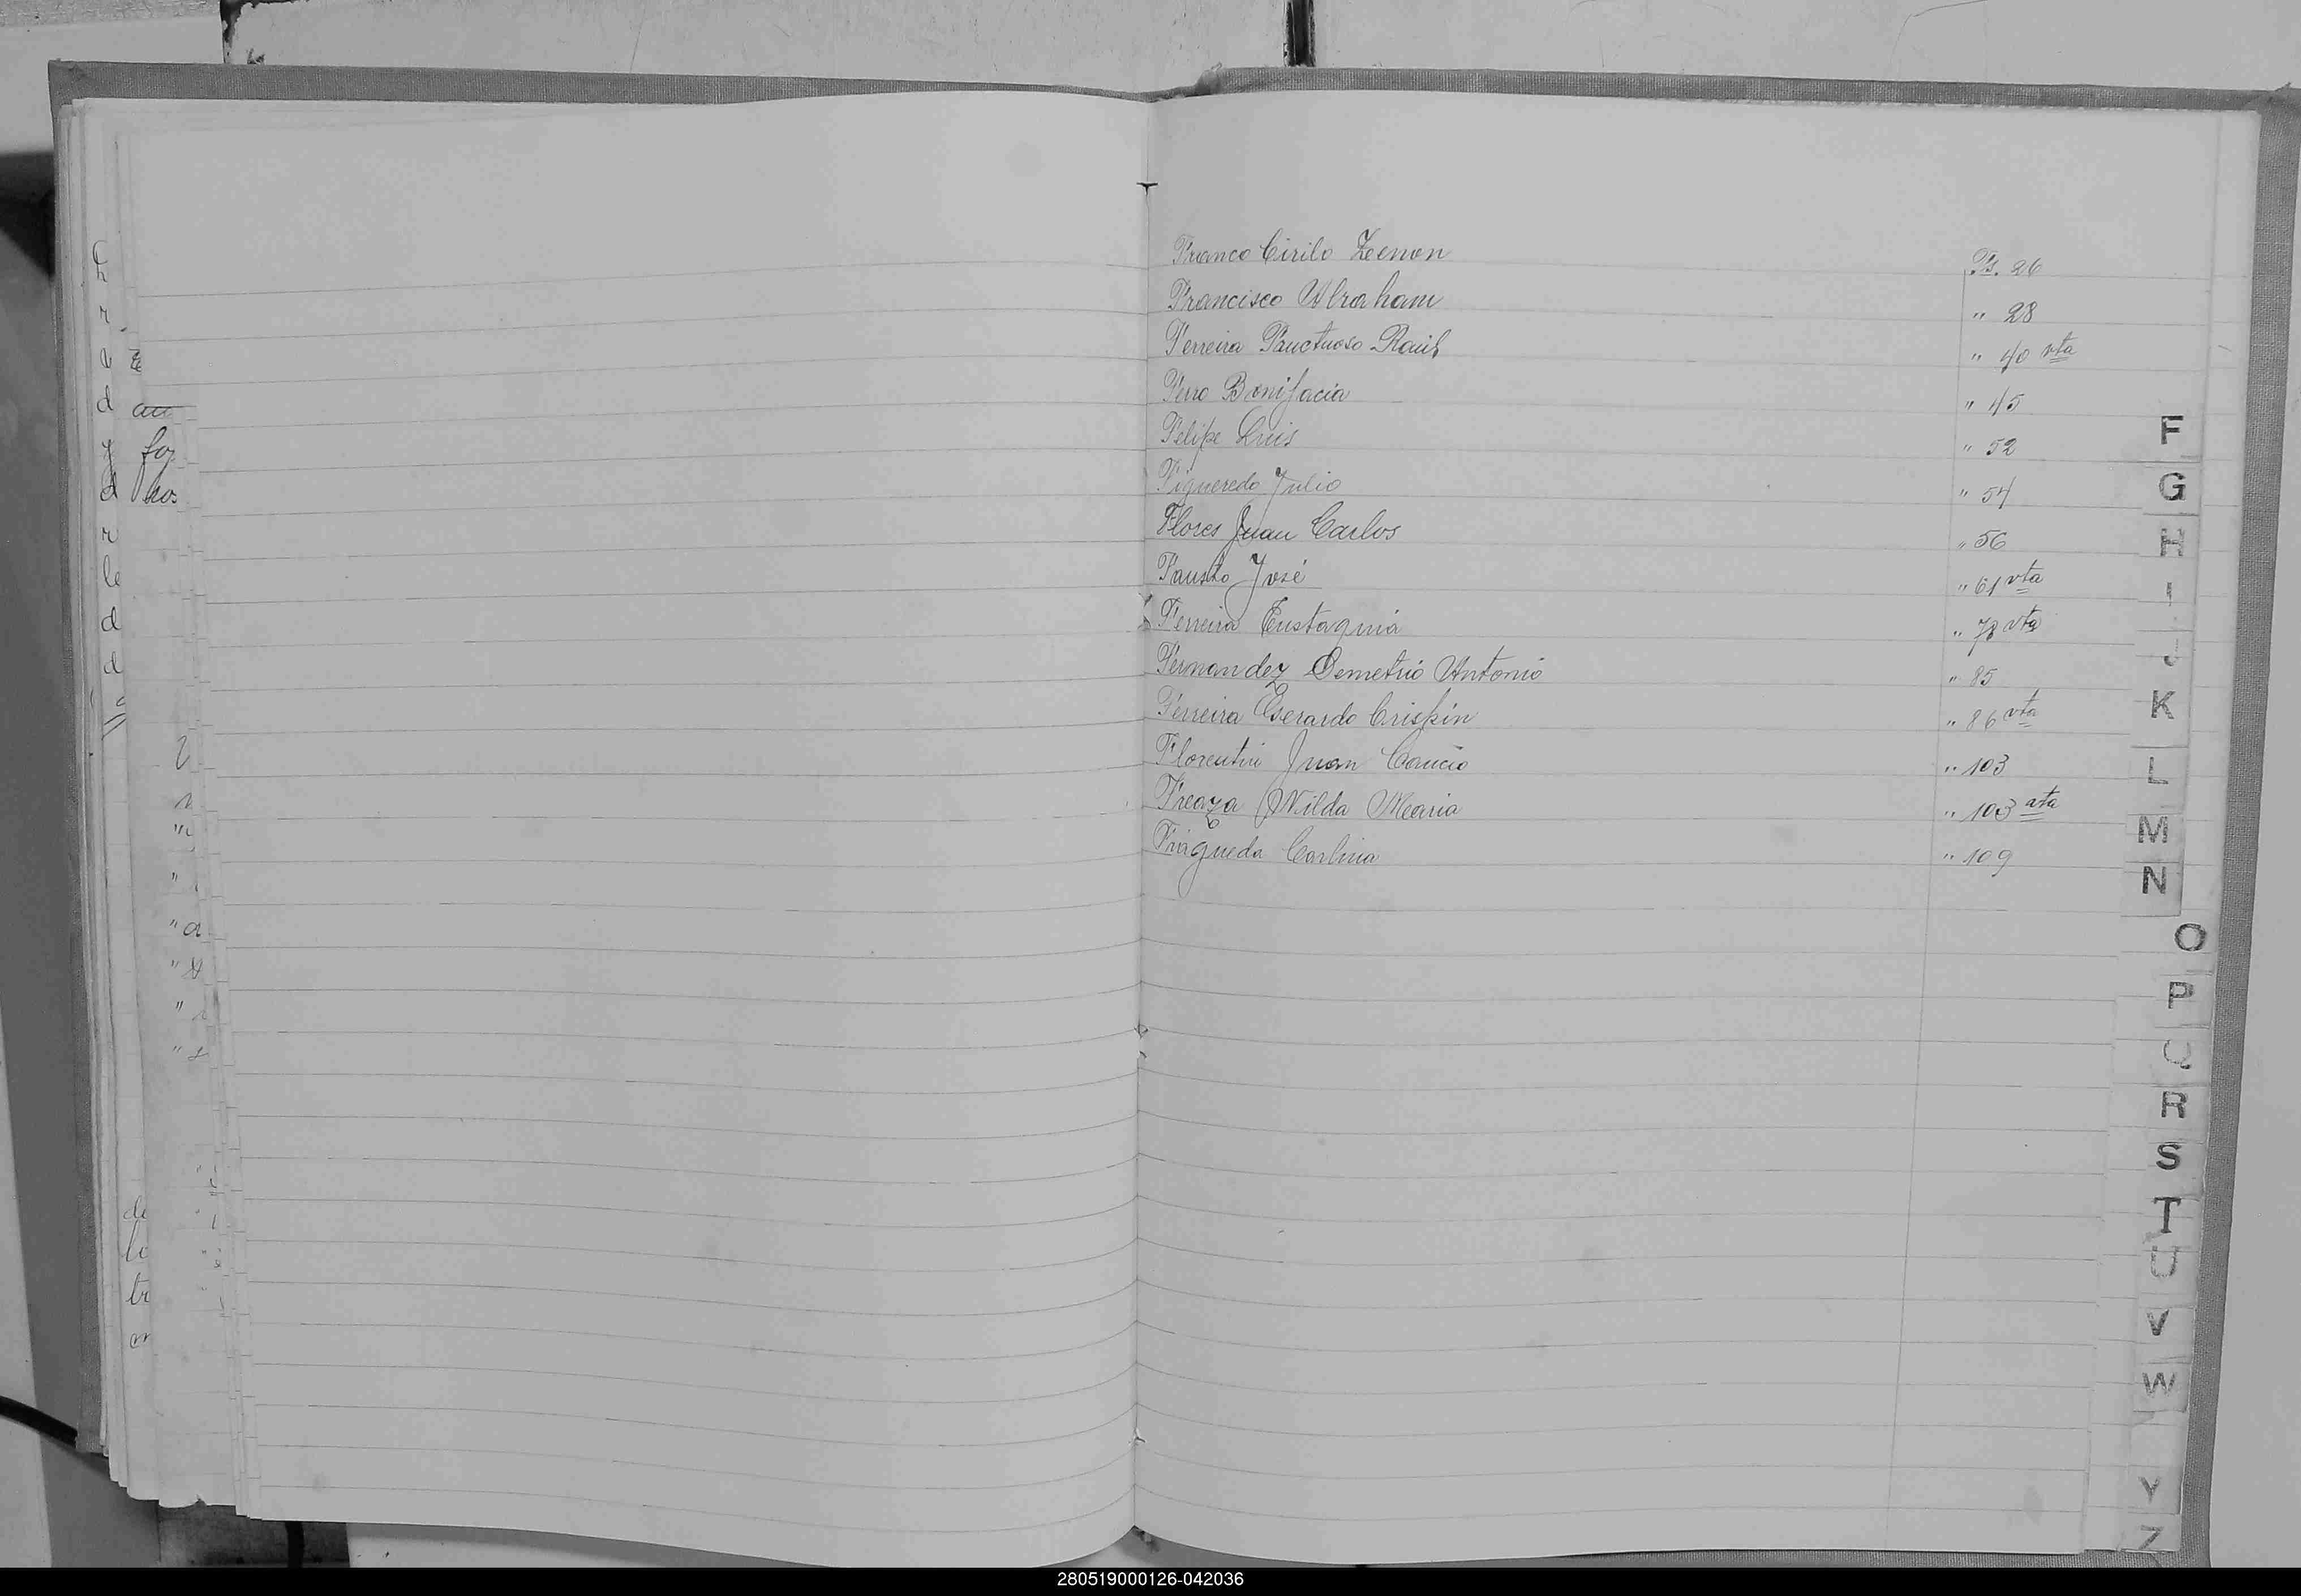 Franco Cirilo Zeenon Fs. 26
Francisco Abraham " 28
Ferreira Fructuoso Raul " 40 vta
Ferro Bonifacia " 45
Felipe Luis " 52
Figueredo Julio " 54
Flores Juan Carlos " 56
Fausto José " 61 vta
Ferreira Eustaquia " 78 vta
Fernandez Demetrio Antonio " 85
Ferreira Gerardo Crispin " 86 vta
Florentin Juan Cancio " 103
Freaza Nilda Maria " 103 vta
Carlina " 109
F
G
H
I
J
K
L
M
N
O
P
Q
R
S
T
U
V
W
Y
Z
280519000126-042036